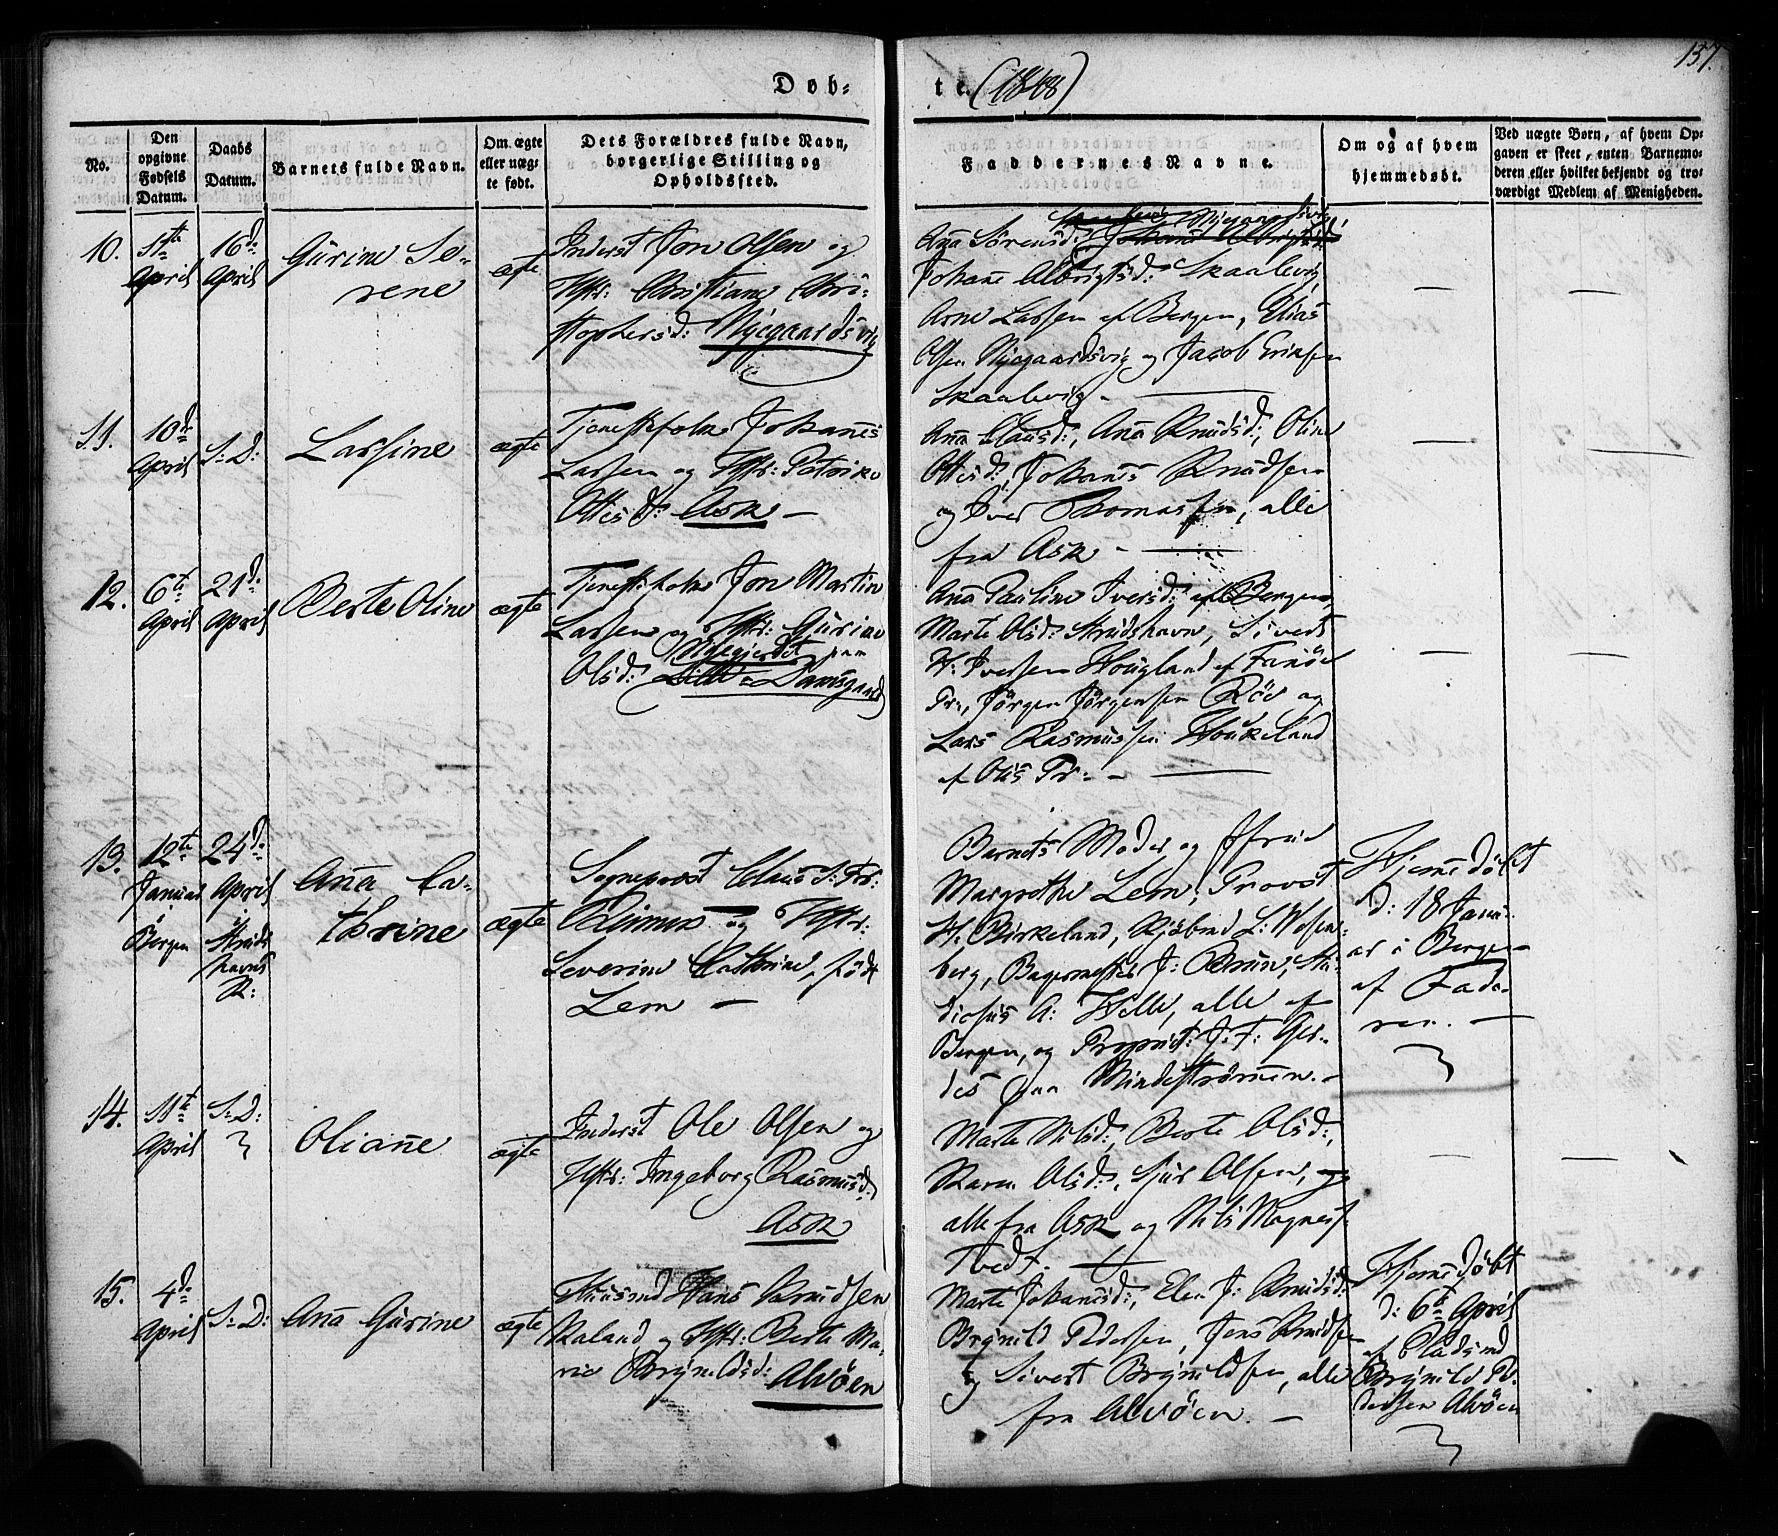 157.
Døb-
te. (1848)
No.
Den opgivne Fødsels Datum.
Daabs Datum.
Barnets fulde Navn.
Om ægte eller uægte født.
Dets Forældres fulde Navn, borgerlige Stilling og Opholdssted.
Faddernes Navne.
Om og af hvem hjemmedøbt.
Ved uægte Børn, af hvem Opgaven er skeet, enten Barnemoderen eller hvilket bekjendt og troværdigt Medlem af Menigheden.
10.
11te April
16d. April
Gurine Se-
rene
ægte
Inderst Jon Olsen og
Hstr: Christiane Chri-
stophersd: Nygaardsvig
Anna Sørensd:
Johane Albrigtsd: Skaalevig
Arne Larsen af Bergen, Elias
Olsen Nygaardsvig og Jacob Eriksen
Skaalevig -
11.
10d. April
S: D:
Larsine
ægte
Tjenestefolk Johanes
Larsen og Hstr: Petrike
Ottesd: Ask -
Anna Clausd:, Anna Knudsd:, Oline
Ottesd:, Johanes Knudsen
og Iver Thomassen, alle
fra Ask -
12.
6te April
21d. April
Berte Oline
ægte
Tjenestefolk Jon Martin
Larsen og Hstr: Gurine
Olsd: paa
Lille Damsgaard
Ana Pauline Iversd: af Bergen,
Marte Olsd: Strudshavn, Sivert
H: Iversen Hougland af Fanøe
Pr:, Jørgen Jørgensen Røe og
Lars Rasmussen Houkeland
af Ous Pr: -
13.
12te Januar Bergen
24d. April Struds havns K:
Anna Ca-
thrine
ægte
Sogneprest Claus
og Hstr:
Severine Cathrine, født
Lem -
Barnets Moder og Jfru
Margrethe Lem, Provst
H: Birkeland, Kjøbmd L: Wesen-
berg, Bagermester J: Brun, Stu-
diosus A: Helle, alle af
Bergen, og Propriet: J: F: Ger-
des paa Mindestrømmen. -
Hjemmedøbt
d: 18 Janu-
ar i Bergen
af Fade-
ren. -
14.
11te April
S: D:
Oliane
ægte
Inderst Ole Olsen og
Hstr: Ingeborg Rasmusd:
Ask
Marte Nilsd:, Berte Olsd:,
Karen Olsd:, Sjur Olsen,
alle fra Ask og Nils Magnes.
Tvedt.
15.
4d. April
S: D:
Ana Gurine
ægte
Huusmd Hans Knudsen
Raland og Hstr: Berte Ma-
rie Brynildsd: Alvøen
Marte Johanesd:, Elen J: Knudsd:
Brynild Pedersen, Jens Knudsen
og Sivert Brynildsen, alle
fra Alvøen. -
Hjemmedøbt
d: 6te April
af Pladsmd
Brynild Pe-
dersen Alvøen